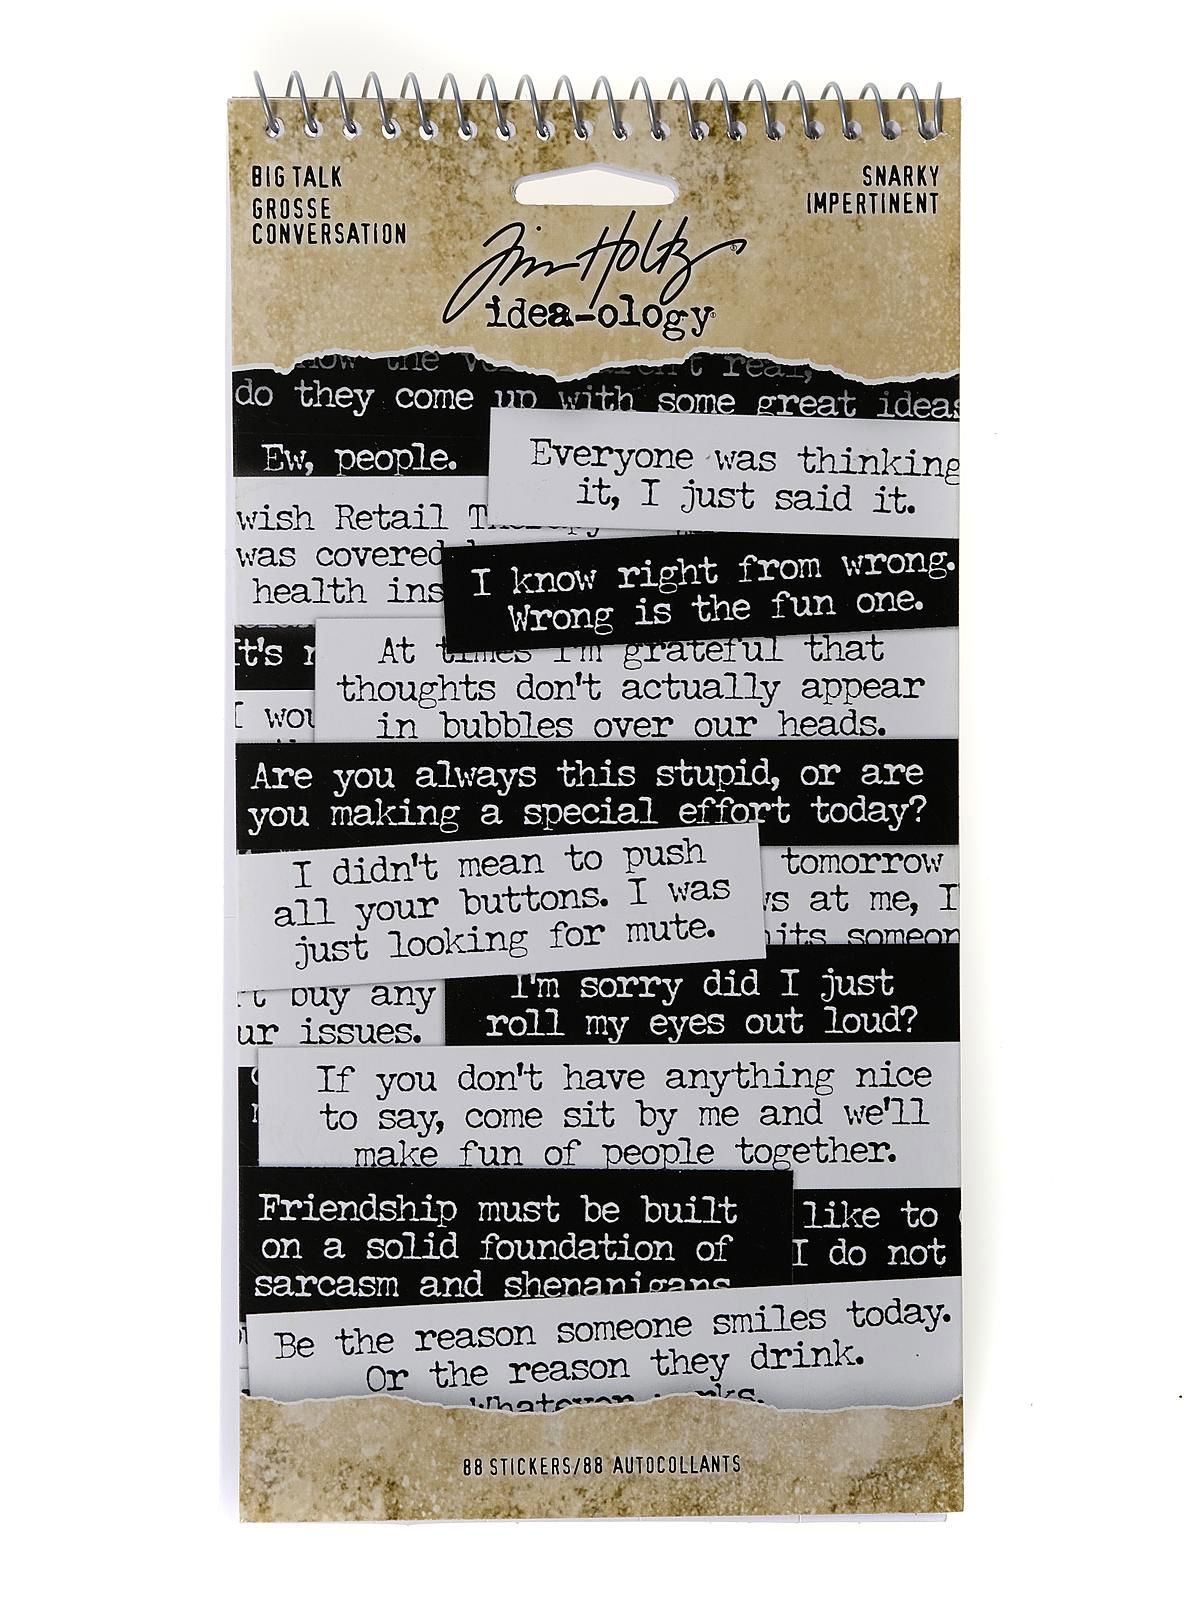 BIG TALK
GROSSE
CONVERSATION
SNARKY
IMPERTINENT
Tim Holtz
idea-ology
the real,
do they come up with some great ideas
Ew, people.
Everyone was thinking
it, I just said it.
wish Retail
was covered
health ins
I know right from wrong.
Wrong is the fun one.
It's
At times I'm grateful that
thoughts don't actually appear
in bubbles over our heads.
I wou
Are you always this stupid, or are
you making a special effort today?
I didn't mean to push
all your buttons. I was
just looking for mute.
tomorrow
ws at me, I
hits someon
't buy any
ur issues.
I'm sorry did I just
roll my eyes out loud?
If you don't have anything nice
to say, come sit by me and we'll
make fun of people together.
Friendship must be built
on a solid foundation of
sarcasm and shenanigans
like to
I do not
Be the reason someone smiles today.
Or the reason they drink.
Whatever
88 STICKERS/88 AUTOCOLLANTS